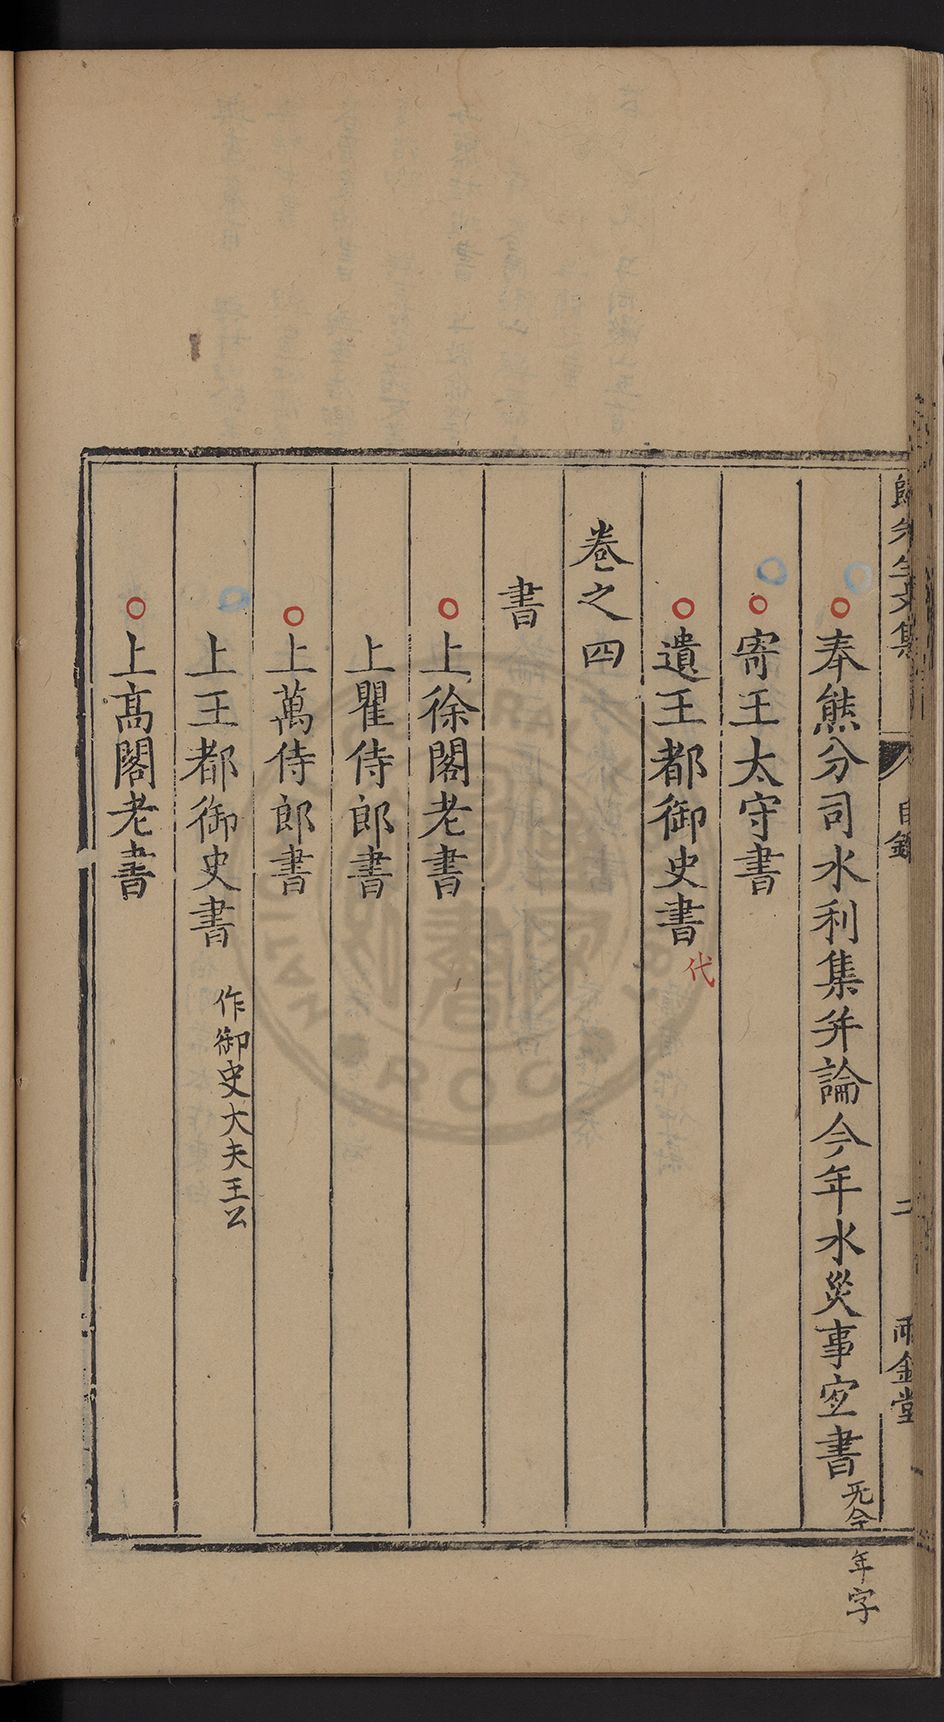 歸先生文集
目錄
二
雨金堂
奉熊分司水利集并論今年水災事宜書
无今年字
寄王太守書
遺王都御史書
代
卷之四
書
上徐閣老書
上瞿侍郎書
上萬侍郎書
上王都御史書
作御史大夫王公
上高閣老書